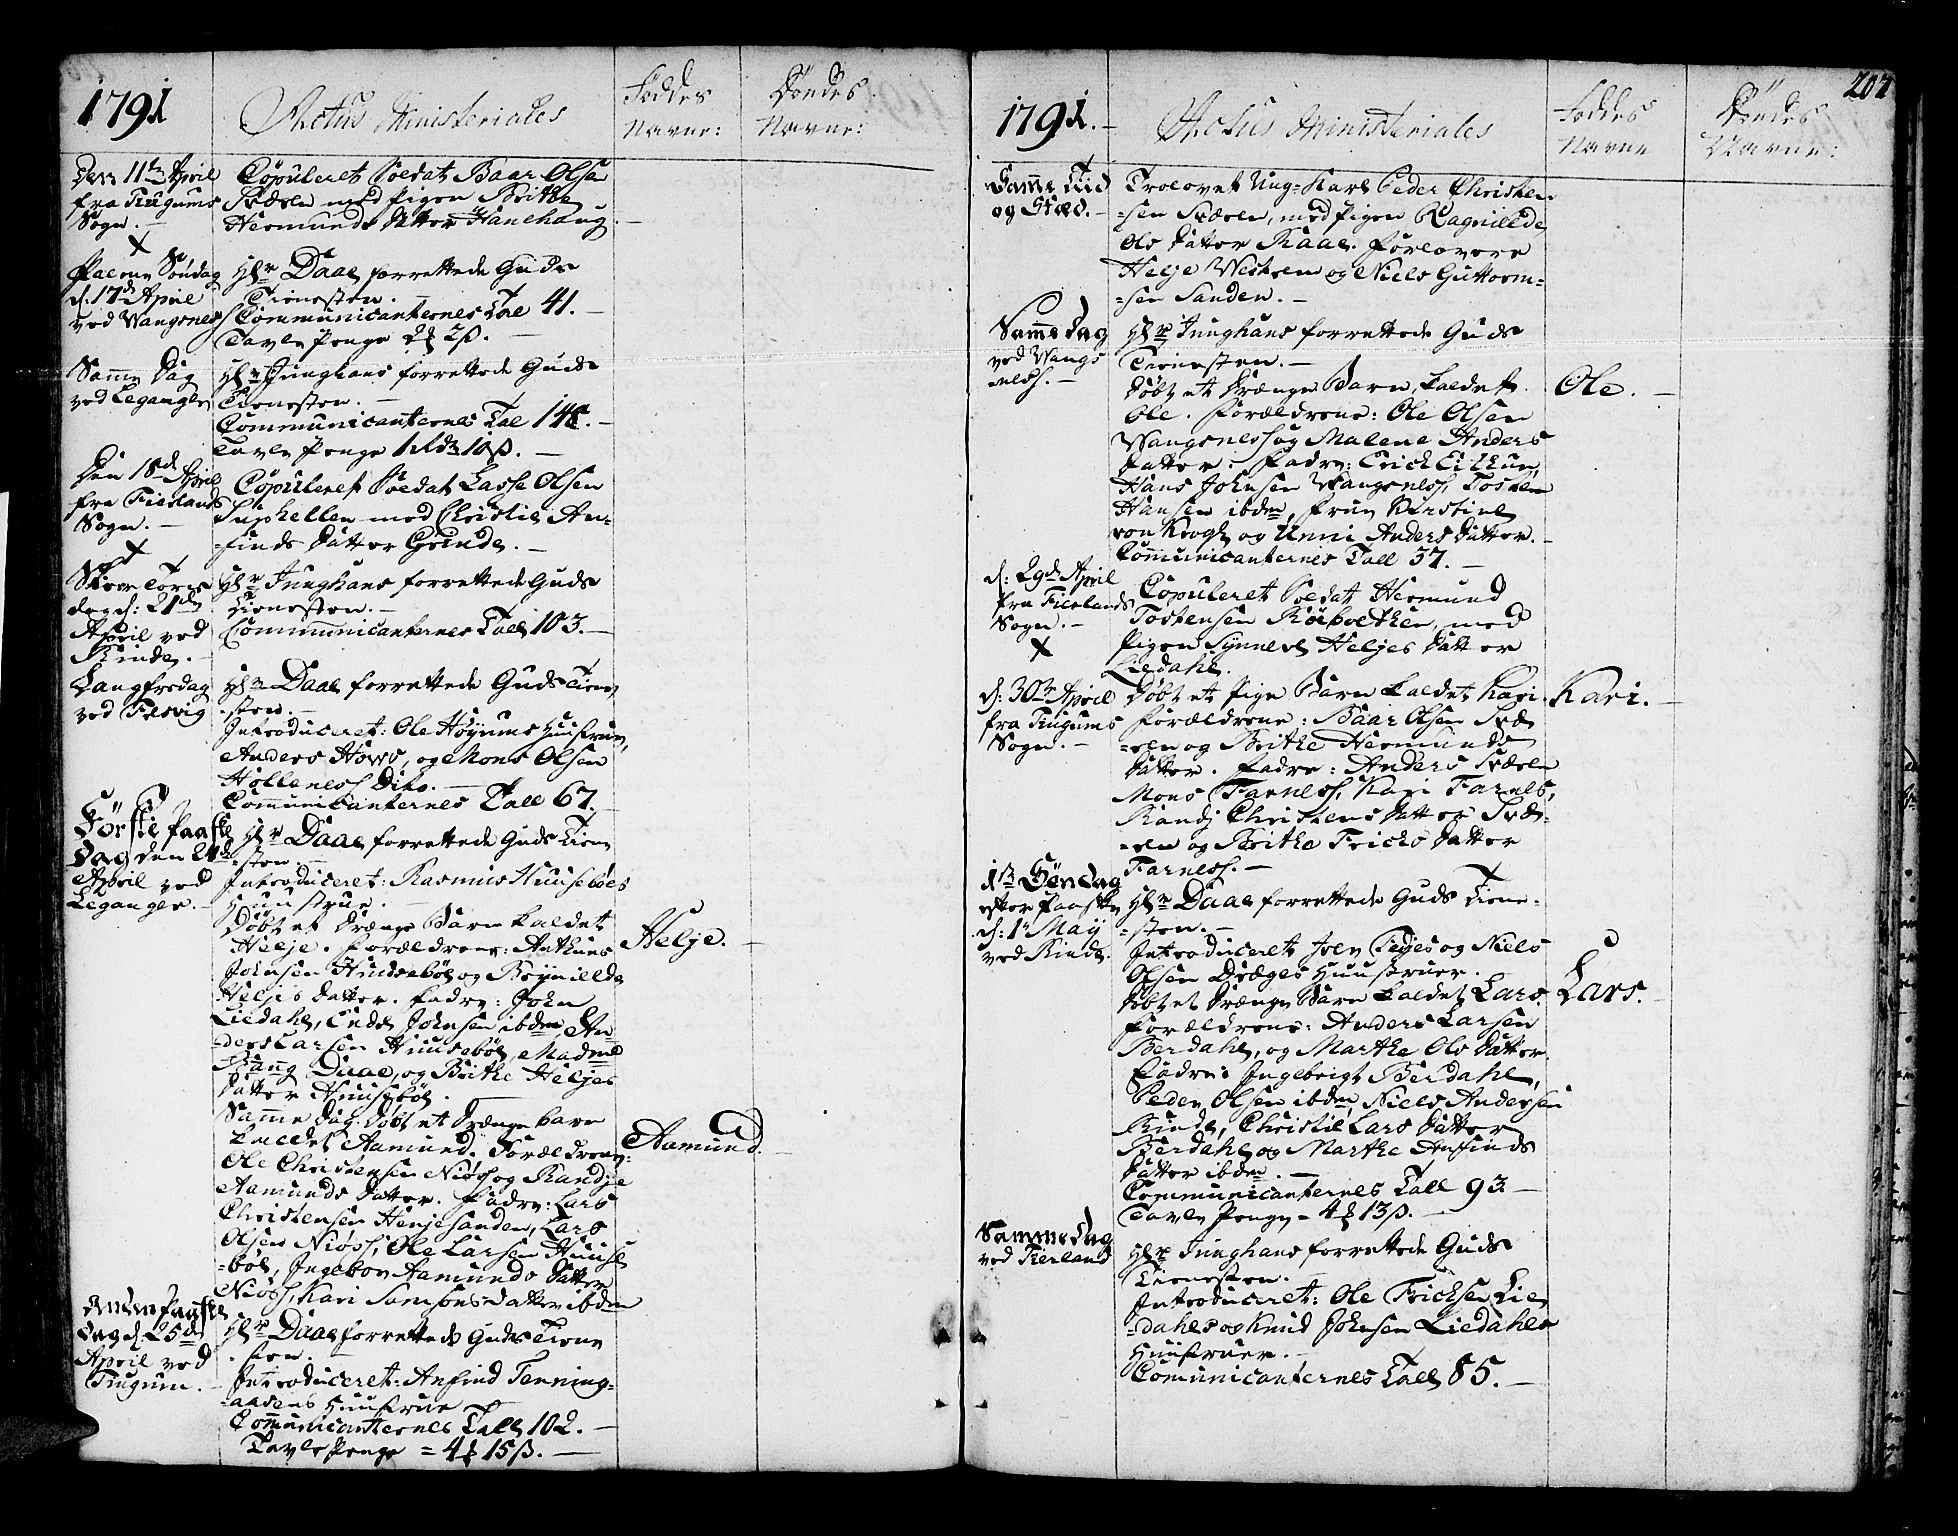 1791
Actus Ministeriales
Føddes
Navne:
Døndes
Navne:
Den 11te April
fra Tiugums
Sogn. -
Copuleret Soldat Baar Olsen
Sværen med Pigen Brithe
Hermunds Datter Hanehaug
X
Palme Søndag
d: 17de April
ved Wangsnes
Hr Daae forrettede Guds
Tienesten. -
Communicanternes Tal 41. -
Tavle Penge 2 ß. -
Samme Dag
ved Leganger
Hr Junghans forrettede Guds
Tienesten. -
Communicanternes Tal
Tavle Penge 1 Rdr 10 ß. -
Den 18de April
fra Fierlands
Sogn. -
X
Copuleret Soldat Lasse Olsen
Suphellen med Christie An-
-finds Datter Grinde. -
Skier Tors
dag d: 21de
April ved
Rinde. -
Hr Junghans forrettede Guds
Tienesten. -
Communicanternes Tall 103. -
Langfredag
ved Fresvig
Hr Daae forrettede Guds Tiene
-sten. -
Introduceret: Ole Høyums Huustrue,
Anders Hows, og Mons Olsen
Hollenes Dito. -
Communicanternes Tall 67. -
Første Paaske
Dag den 24de
April ved
Leganger. -
Hr Daae forrettede Guds Tiene
-sten. -
Introduceret: Rasmus Huusebøes
Huustrue. -
Døbt et Drænge Barn kaldet
Helje. Forældrene: Anthun
Johnsen Huusebøe og Røynillde
Heljes Datter. Fadre: John
Liedahl, Endre Johnsen ibdm An-
-ders Larsen Huusebøe, Madme
Daae, og Brithe Heljes
Datter Huusebøe. -
Helje. -
Samme Dag Døbt et Drænge barn
kaldet Aamund. Forældrene:
Ole Christensen Niøss og Randje
Aamunds Datter. Fadre: Lars
Christensen Henjesanden, Lars
Olsen Niøss, Ole Larsen Huuse
-bøe, Ingebor Aamunds Datter
Niøss, Kari Samsons datter ibdm
Aamund. -
Anden Paaske
Dag d: 25de
April ved
Tiugum. -
Hr Daae forrettede Guds Tiene
-sten. -
Introduceret: Anfind Tenning-
-aasens Huustrue
Communicanternes Tall 102. -
Tavle Penge = 4 15 ß. -
207
1791. -
Actus Ministeriales
Føddes
Navne
Døndes
Navne:
Samme Tid
og Sted. -
Trolovet Ung-Karl Peder Christen-
-sen Sværen, med Pigen Ragnillde
Ols Datter Raae. Forlovere
Helje Westsen og Niels Guttorm-
-sen Sanden. -
Samme dag
ved Wangs
-ness. -
Hr Junghans forrettede Guds
Tienesten. -
Døbt et Drænge Barn, kaldet
Ole. Forældrene: Ole Olsen
Wangsness og Malene Anders
Datter. Fadre: Erich
Hans Johnsen Wangsness, Tosten
Hansen ibdm, Frue Kirstine
von Krogh og Unni Anders Datter.
Communicanternes Tall 37. -
Ole. -
d: 29de April
fra Fierlands
Sogn. -
X
Copuleret Soldat Hermund
Tostensen med
Pigen Synneve Heljes Datter
Liedahl.
d: 30te April
fra Tiugums
Sogn. -
Døbt et Pige Barn kaldet Kari.
Forældrene: Baar Olsen Svæ
-ren og Brithe Hermunds
Datter. Fadre: Anders Sværen
Mons Farness, Kari Farnes,
Randj Christens Datter Svæ-
-ren og Brithe Erichs Datter
Farness. -
Kari. -
1te Søndag
efter Paaske
d: 1te Maij
ved Rinde.
Hr Daae forrettede Guds Tiene-
-sten. -
Introduceret Joen Tejes og Niels
Olsen Drægers Huustruer.
Døbt et Drænge Barn kaldet Lars.
Forældrene: Anders Larsen
Berdahl, og Marthe Ols Datter.
Fadre: Ingebrigt Berdahl,
Peder Olsen ibdm, Niels Andersen
Rinde, Christie Lars Datter
Berdahl og Marthe Anfinds
Datter ibdm. -
Communicanternes Tall 93. -
Tavle Penge = 4 13 ß. -
Lars. -
Samme dag
ved Fierland
Hr Junghans forrettede Guds
Tienesten. -
Introduceret: Ole Erichsen Lie
-dahls og Knud Johnsen Liedahls
Huustruer. -
Communicanternes Tall 85. -